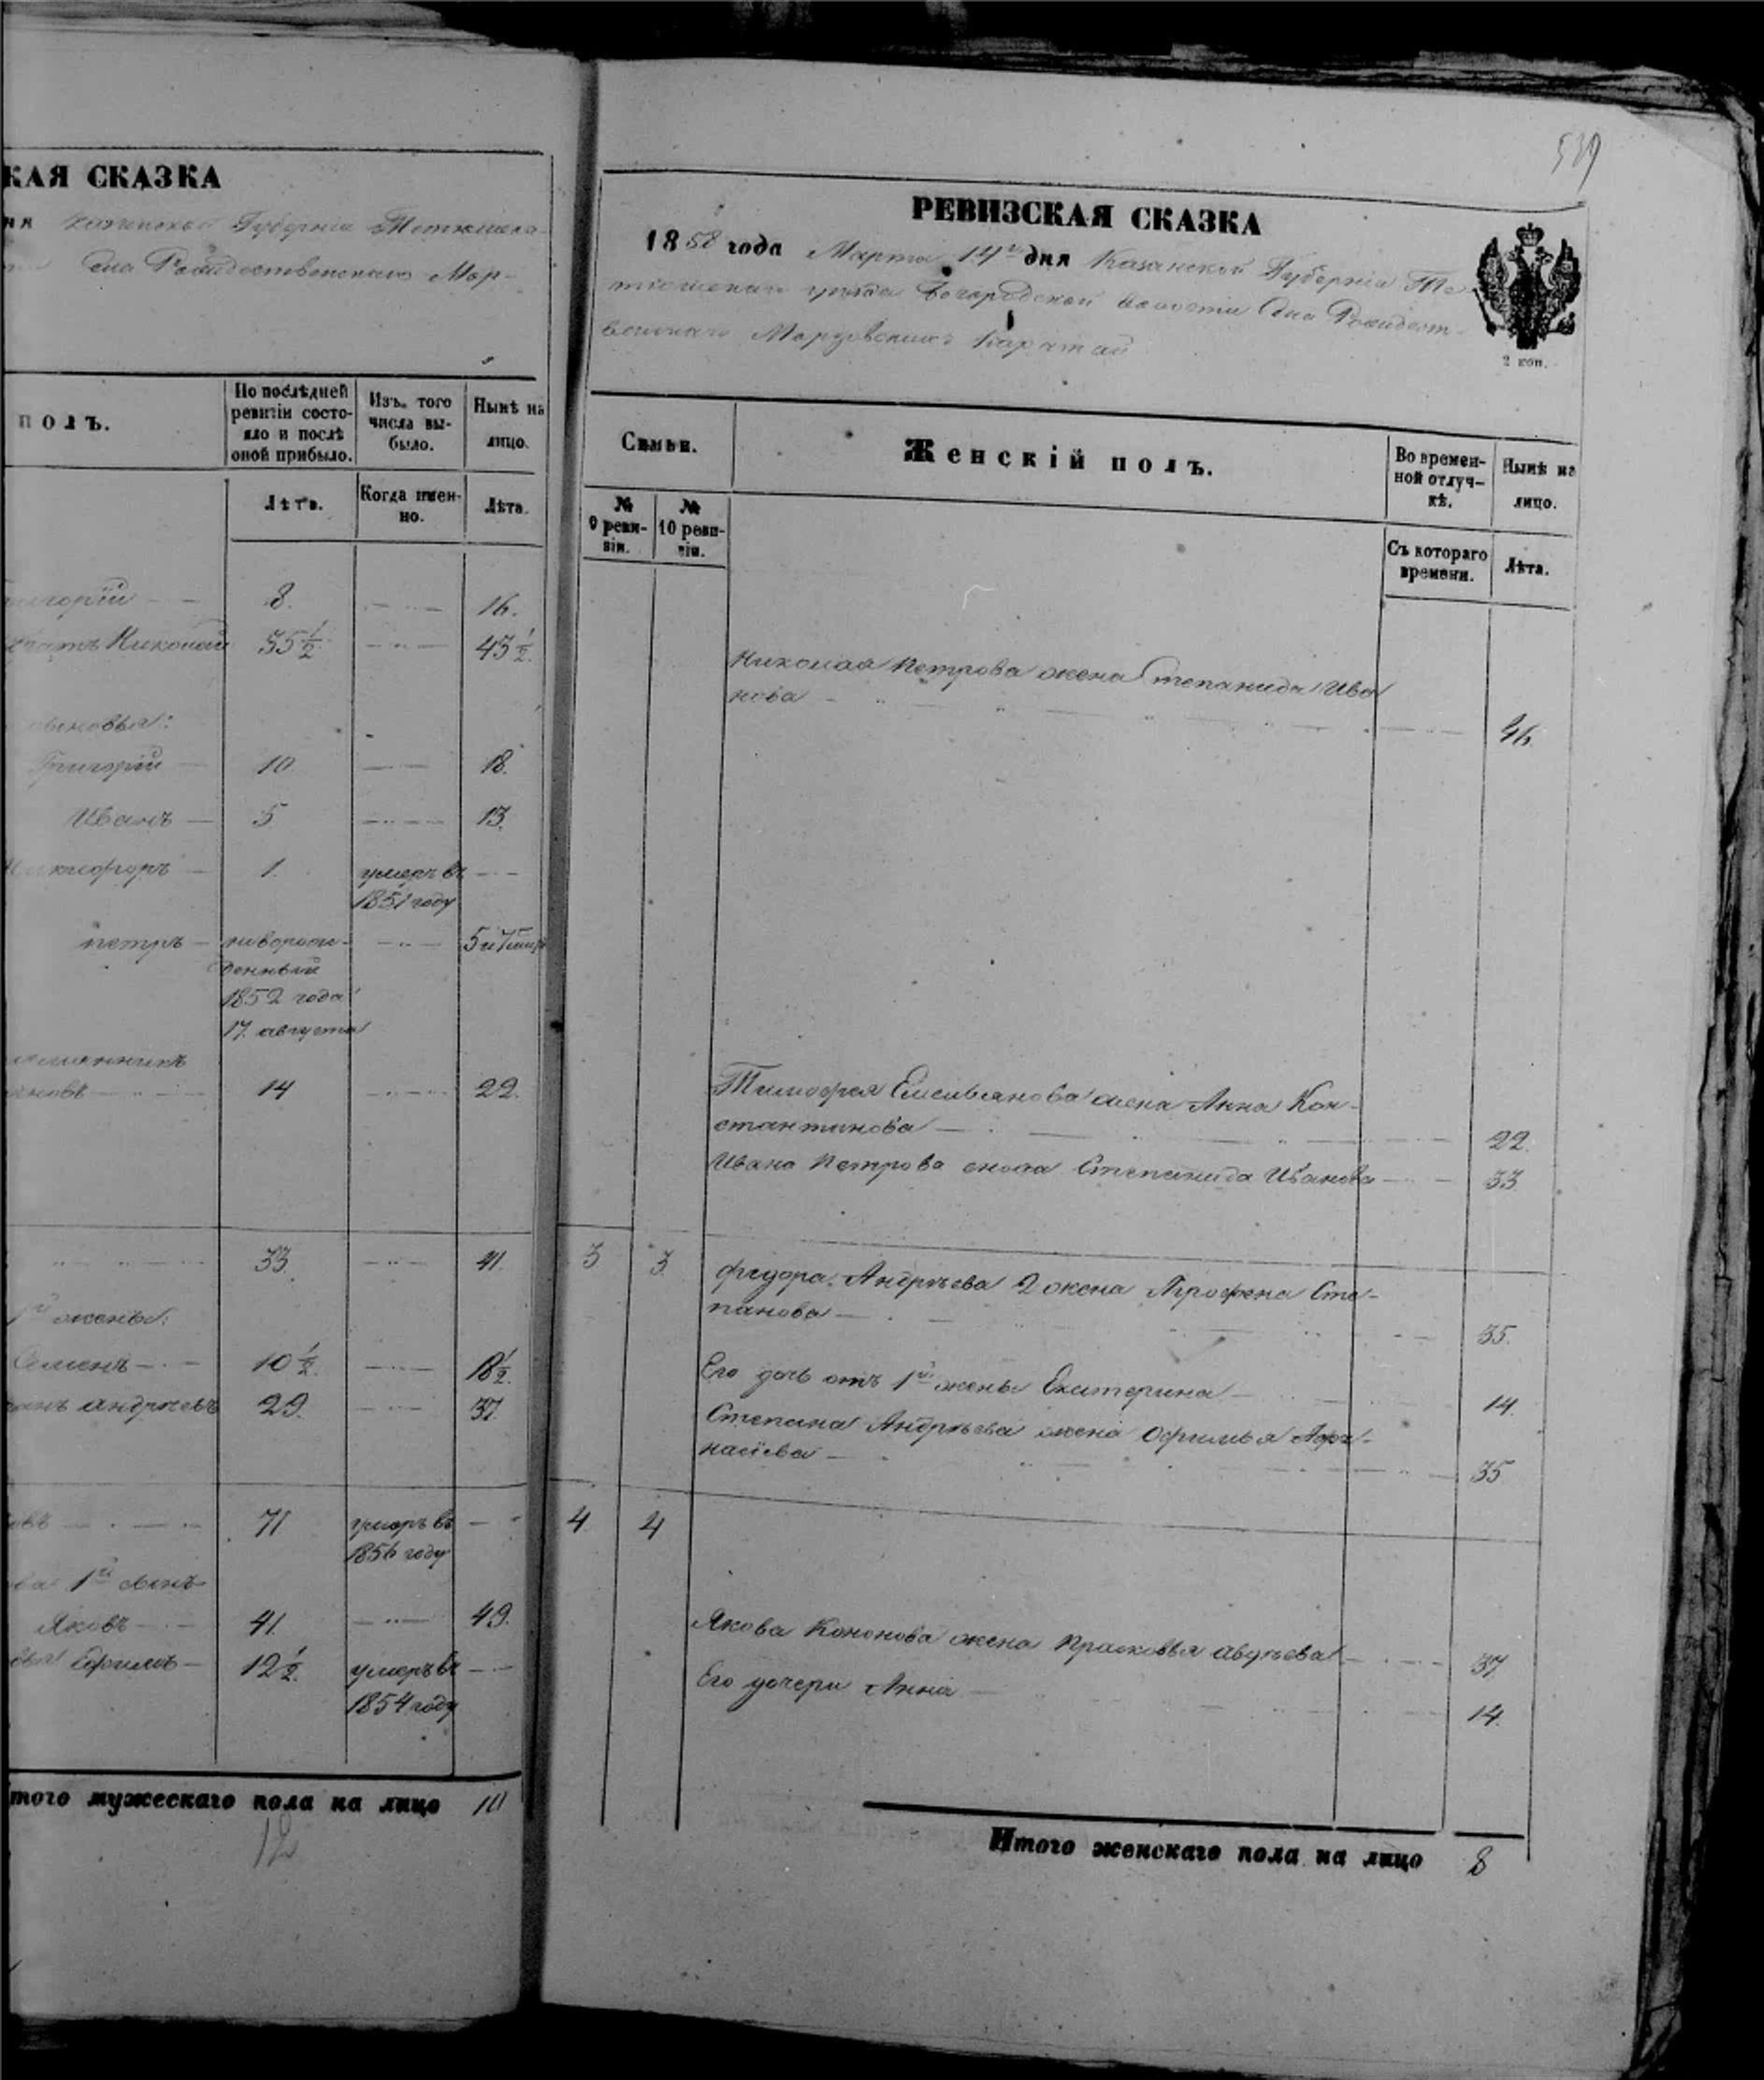 КАЯ СКАЗКА
Губернии
села Рождественскаго Мор-
полъ.
По послѣдней
ревизіи состо-
яло и послѣ
оной прибыло.
Изъ того
числа вы-
было.
Нынѣ на
лицо.
Лѣта.
Когда имен-
но.
Лѣта.
8. 16.
братъ Николай 35 1/2 43 1/2.
сыновья:
Григорій 10 18.
Иванъ 5 13.
1. умеръ въ
1851 году
петръ новорож-
денный
1852 года
17 августа
14 22.
33. 41.
1й жены:
Семенъ 10 1/2. 18 1/2.
андреевъ 29. 37.
71 умеръ въ
1856 году
1й сынъ
Яковъ 41. 49.
Ефимъ 12 1/2. умеръ въ
1854 году
того мужескаго пола на лицо 10
12
539
РЕВИЗСКАЯ СКАЗКА
1858 года Марта 14го дня Казанской Губерніи Те-
тюшскаго уѣзда Богородской волости Села Рождест-
венскаго Мордовскихъ Каратай
2 коп.
Семьи.
Женскій полъ.
Во времен-
ной отлуч-
кѣ.
Нынѣ на
лицо.
№
9 реви-
зіи.
№
10 реви-
зіи.
Съ котораго
времени.
Лѣта.
Николая Петрова жена Степанида Ива
нова 46
Тимофея Емельянова жена Анна Кон-
стантинова 22.
Ивана Петрова сноха Степанида Иванова 33
3 3 федора Андрѣева 2 жена Агрофена Сте-
панова 35.
Его дочь отъ 1й жены Екатерина 14.
Степана Андрѣева жена Офимья Афа-
насіева 35
4 4
Якова Кононова жена Прасковья авдѣева 37
Его дочери Анна 14.
Итого женскаго пола на лицо 8